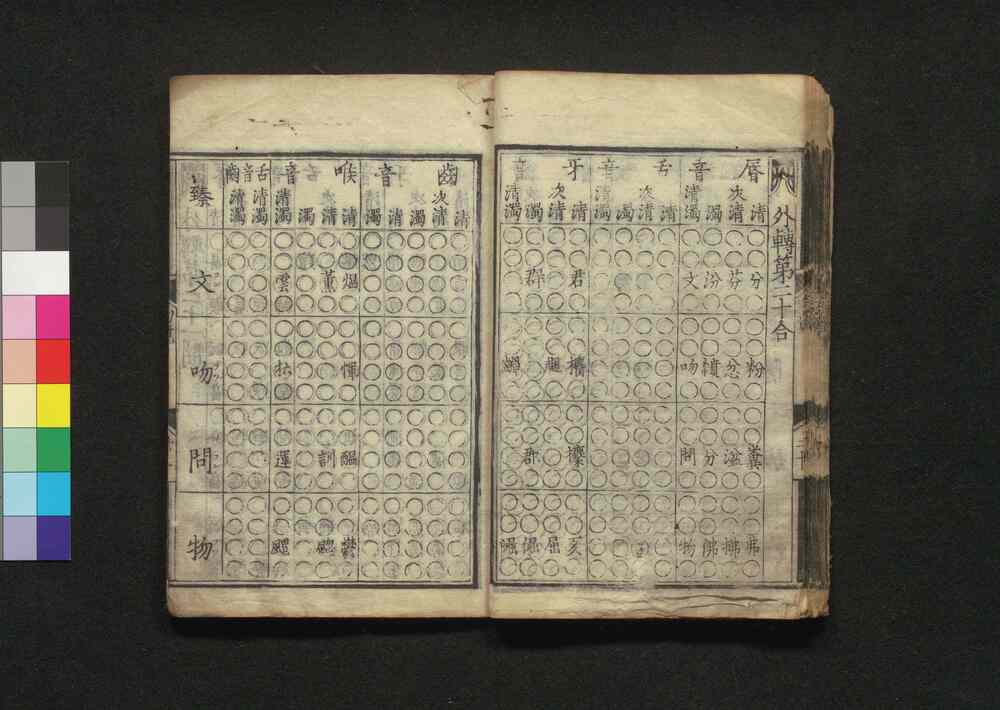 外轉第二十合
脣音 舌音 牙音
清 次清 濁 清濁 清 次清 濁 清濁 清 次清 濁 清濁
分 芬 汾 文 君 群
粉 忿 憤 吻
糞 湓 分 問 郡
弗 拂 佛 物 屈 倔 崛
齒音 喉音 舌音齒
清 次清 濁 清 濁 清 次清 濁 清濁 清濁 清濁
熅 薰 雲 文
惲 抎 吻
醞 訓 運 問
鬱 颮 物
臻